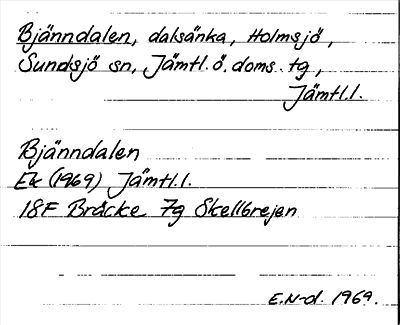 Bjänndalen, dalsänka, Holmsjö,
Sundsjö sn, Jämtl. ö. doms. tg,
Jämtl.l.
Bjänndalen
Ek (1969) Jämtl.l.
18F Bräcke 7g Skellbrejen
E.N-d. 1969.